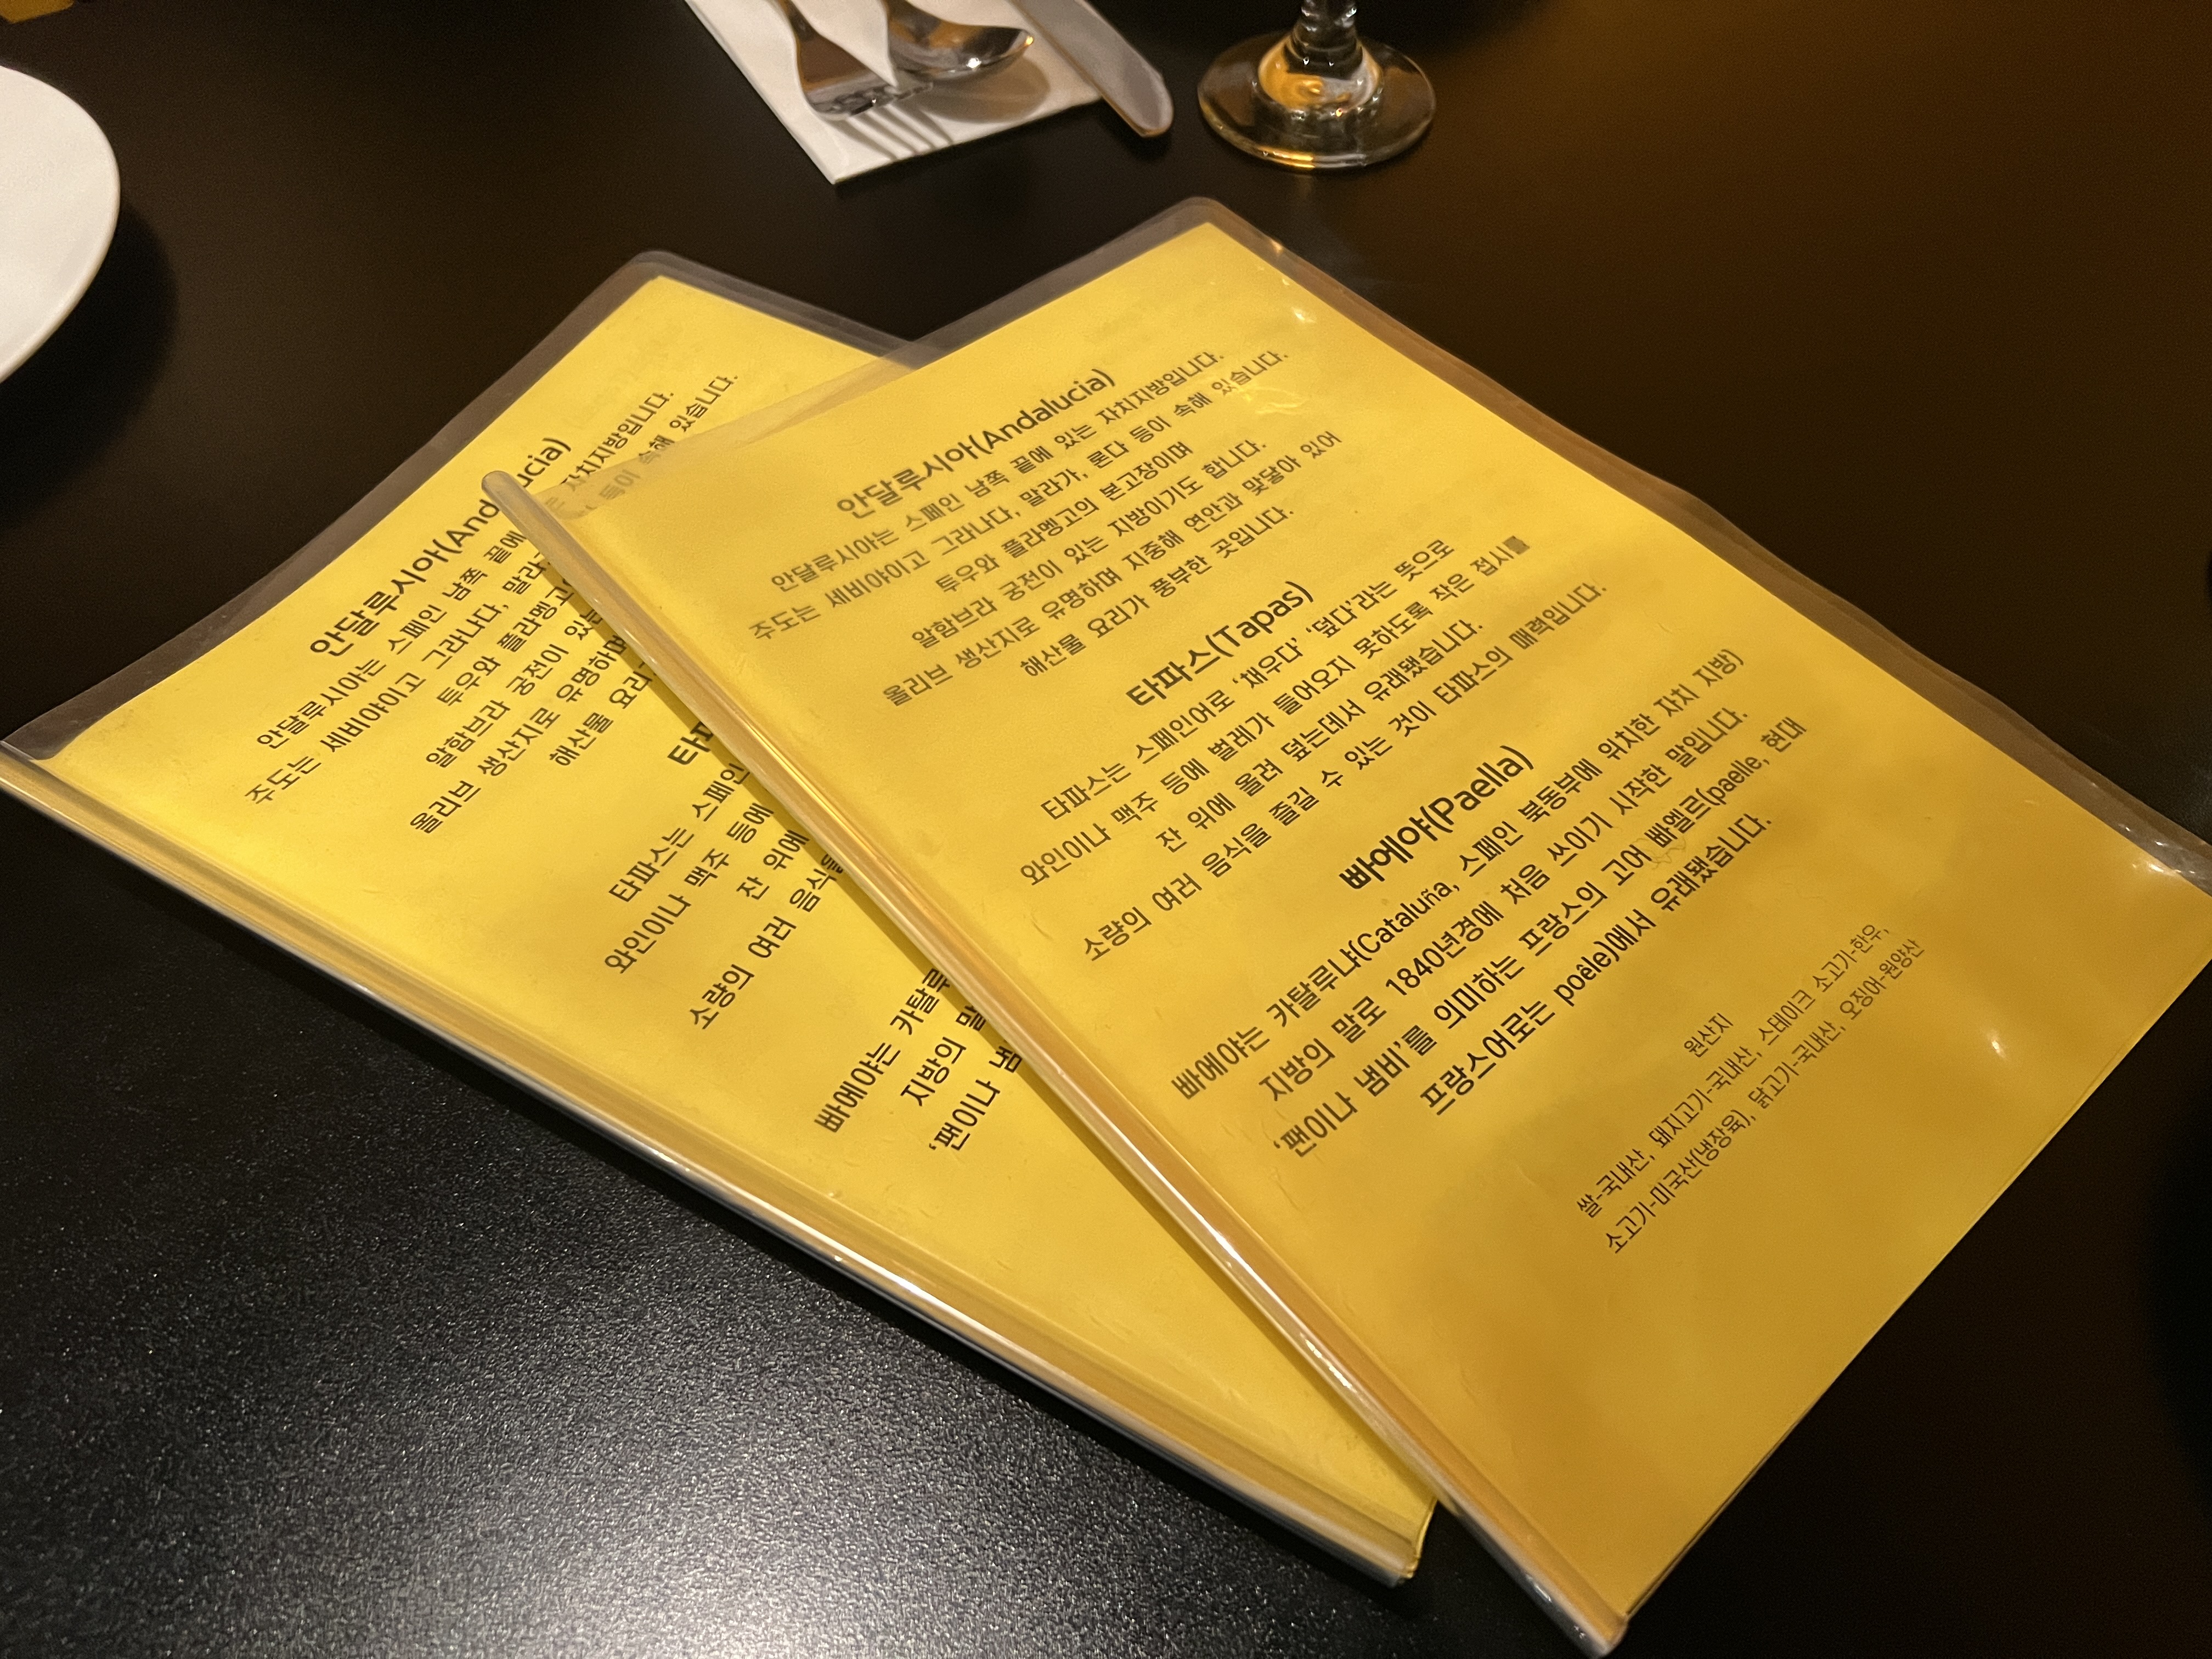 안달루시아(Andalucia)
안달루시아는 스페인 남쪽 끝에
자치지방입니다.
주도는 세비야이고 그라나다, 말라
등이 속해 있습니다.
투우와 플라멩고
알함브라 궁전이 있는
올리브 생산지로 유명하며
해산물 요리
타파
타파스는 스페인
와인이나 맥주 등에
잔 위에
소량의 여러 음식을
빠에야는 카탈루
지방의 말
'팬이나 냄
안달루시아(Andalucia)
안달루시아는 스페인 남쪽 끝에 있는 자치지방입니다.
주도는 세비야이고 그라나다, 말라가, 론다 등이 속해 있습니다.
투우와 플라멩고의 본고장이며
알함브라 궁전이 있는 지방이기도 합니다.
올리브 생산지로 유명하며 지중해 연안과 맞닿아 있어
해산물 요리가 풍부한 곳입니다.
타파스(Tapas)
타파스는 스페인어로 '채우다' '덮다'라는 뜻으로
와인이나 맥주 등에 벌레가 들어오지 못하도록 작은 접시
잔 위에 올려 덮는데서 유래됐습니다.
소량의 여러 음식을 즐길 수 있는 것이 타파스의 매력입니다.
빠에야(Paella)
빠에야는 카탈루냐(Cataluña, 스페인 북동부에 위치한 자치 지방)
지방의 말로 1840년경에 처음 쓰이기 시작한 말입니다.
'팬이나 냄비'를 의미하는 프랑스의 고어 빠엘르(paelle, 현대
프랑스어로는 poêle)에서 유래됐습니다.
원산지
쌀-국내산, 돼지고기-국내산, 스테이크 소고기-한우,
소고기-미국산(냉장육), 닭고기-국내산, 오징어-원양산